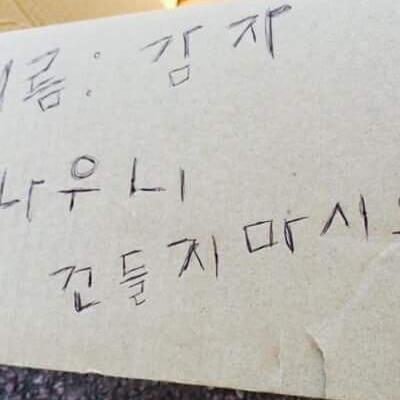 이름: 감자
나우니
건들지마시오